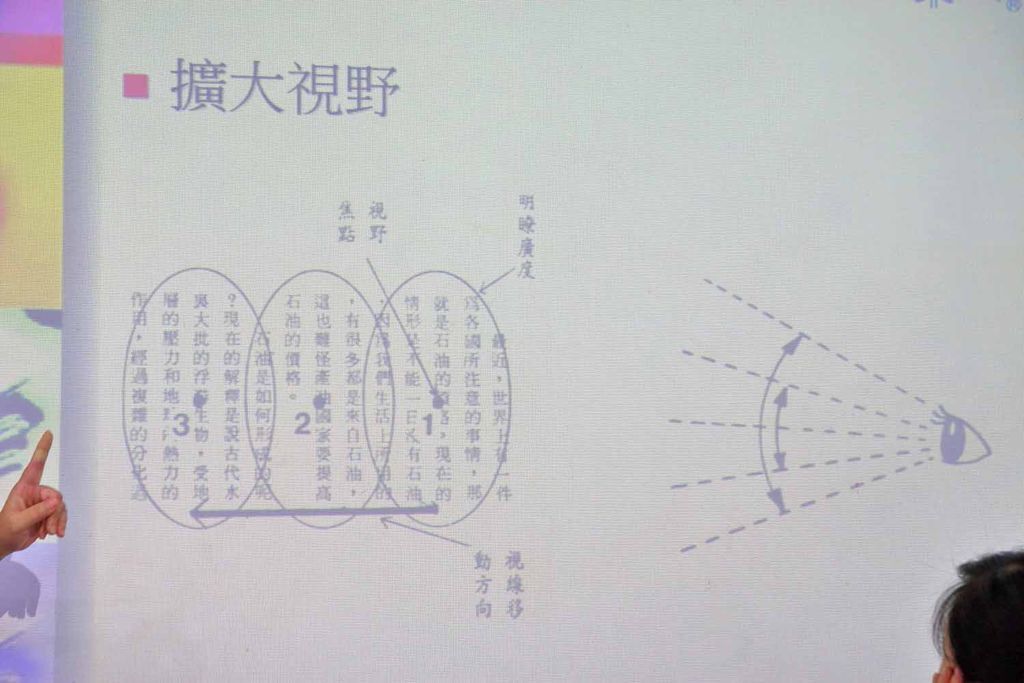 擴大視野
明瞭廣度
視野
焦點
最近，世界上有一件
爲各國所注意的事情，那
就是石油的價格，現在的
情形是不能一日沒有石油
，因爲我們生活上所用的
，有很多都是來自石油，
這也難怪產油國家要提高
石油的價格。
石油是如何形成的呢
？現在的解釋是說古代水
裏大批的浮游生物，受地
層的壓力和地熱力的
作用，經過複雜的分化過
1
2
3
視線移
動方向